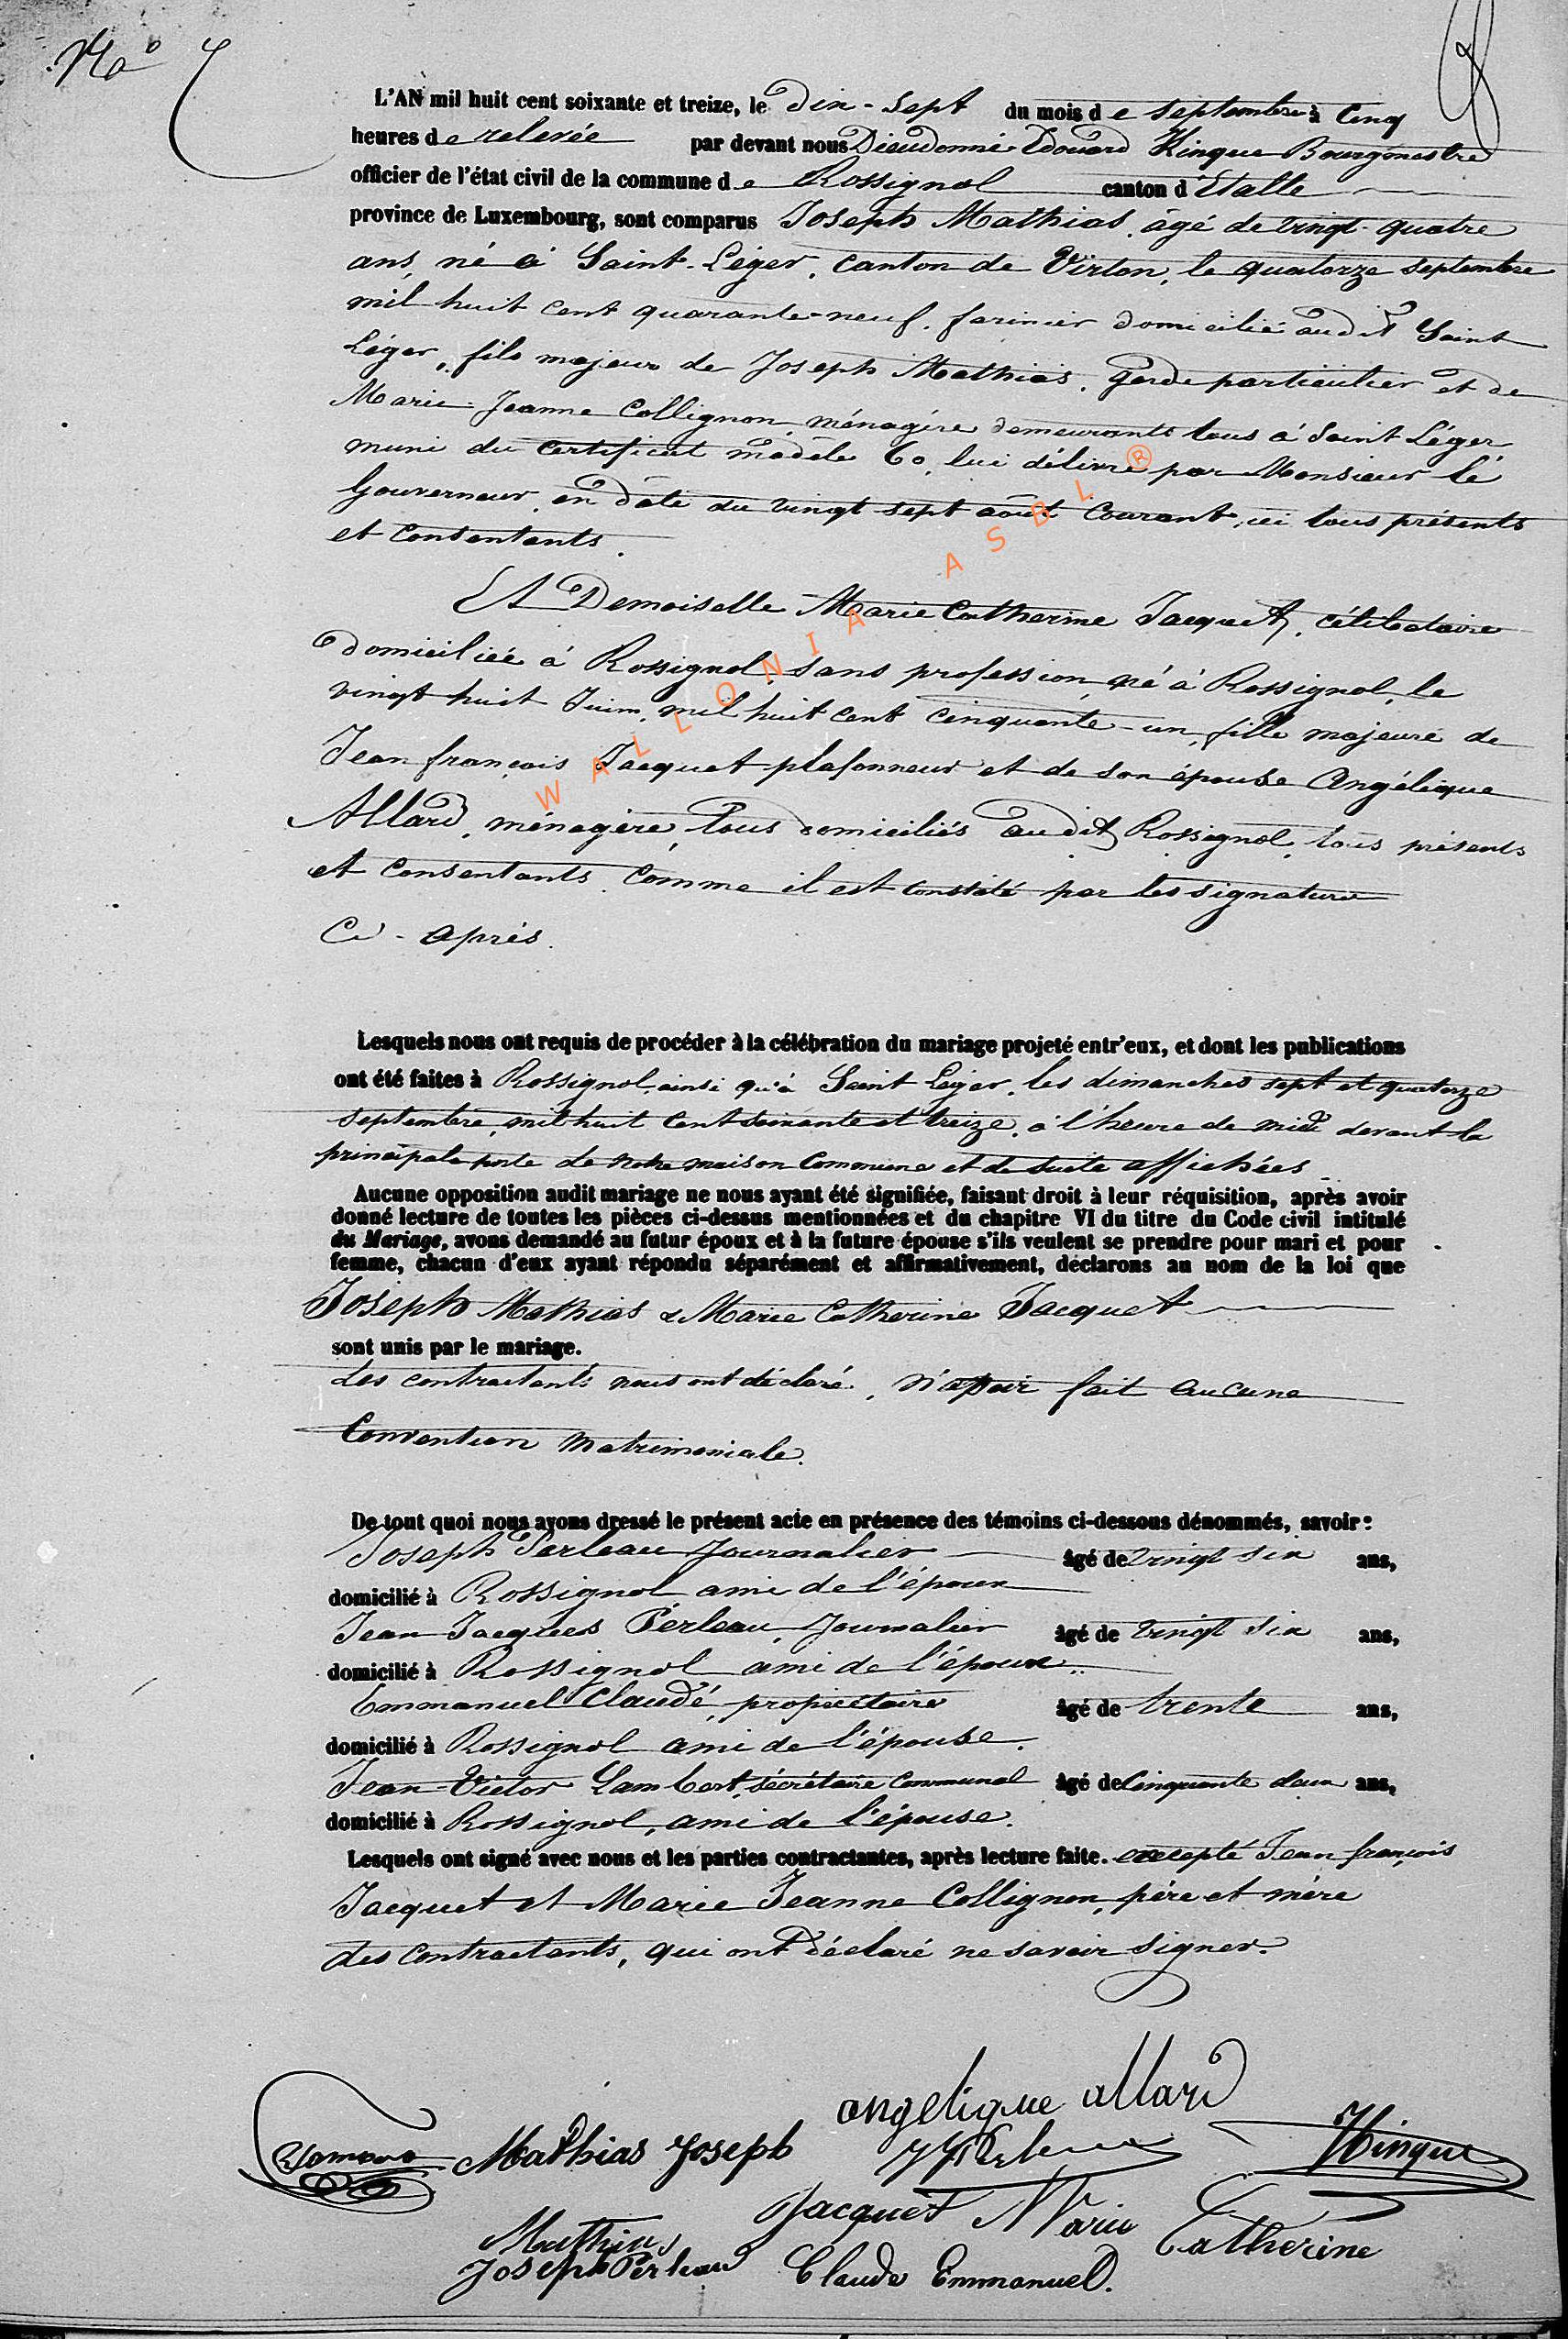 No 7
L'AN mil huit cent soixante et treize, le dix-sept du mois de septembre à cinq
heures de relevée par devant nous Dieudonné Edouard Hinque Bourgmestre
officier de l'état civil de la commune de Rossignol canton d'Etalle
province de Luxembourg, sont comparus Joseph Mathias, âgé de vingt-quatre
ans, né à Saint-Léger, canton de Virton, le quatorze septembre
mil huit cent quarante-neuf, farinier domicilié audit Saint
Léger, fils majeur de Joseph Mathias, garde particulier et de
Marie-Jeanne Collignon, ménagère demeurants tous à Saint Léger
muni du certificat modèle 60, lui délivré par Monsieur le
Gouverneur, en date du vingt sept août courant, ici tous présents
et consentants.
Et Demoiselle Marie Catherine Jacquet, célibataire
domiciliée à Rossignol, sans profession, né à Rossignol, le
vingt huit Juin, mil huit cent cinquante-un, fille majeure de
Jean françois Jacquet plafonneur et de son épouse Angélique
Allard, ménagère, tous domiciliés audit Rossignol, tous présents
et consentants. comme il est constaté par les signatures
Ci-après.
Lesquels nous ont requis de procéder à la célébration du mariage projeté entr'eux, et dont les publications
ont été faites à Rossignol, ainsi qu'à Saint Léger, les dimanches sept et quatorze
septembre, mil huit cent soixante et treize, à l'heure de midi devant la
principale porte de notre maison Commune et de suite affichées
Aucune opposition audit mariage ne nous ayant été signifiée, faisant droit à leur réquisition, après avoir
donné lecture de toutes les pièces ci-dessus mentionnées et du chapitre VI du titre du Code civil intitulé
du Mariage, avons demandé au futur époux et à la future épouse s'ils veulent se prendre pour mari et pour
femme, chacun d'eux ayant répondu séparément et affirmativement, déclarons au nom de la loi que
Joseph Mathias & Marie Catherine Jacquet
sont unis par le mariage.
Les contractants nous ont déclaré, n'avoir fait aucune
Convention matrimoniale.
De tout quoi nous avons dressé le présent acte en présence des témoins ci-dessous dénommés, savoir:
Joseph Perleau Journalier âgé de vingt six ans,
domicilié à Rossignol ami de l'époux
Jean Jacques Perleau, Journalier âgé de vingt six ans,
domicilié à Rossignol ami de l'époux..
Emmanuel Claude, propriétaire âgé de trente ans,
domicilié à Rossignol ami de l'épouse.
Jean-Victor Lambert, sécrétaire communal âgé de Cinquante deux ans,
domicilié à Rossignol, ami de l'épouse.
Lesquels ont signé avec nous et les parties contractantes, après lecture faite. excepté Jean françois
Jacquet et Marie Jeanne Collignon, père et mère
des contractants, qui ont déclaré ne savoir signer.
angelique allard
Mathias Joseph JJPerleau Hinque
Jacquet Marie Catherine
Mathias
Joseph Perleau Claude Emmanuel.
WALLONIA ASBL ®